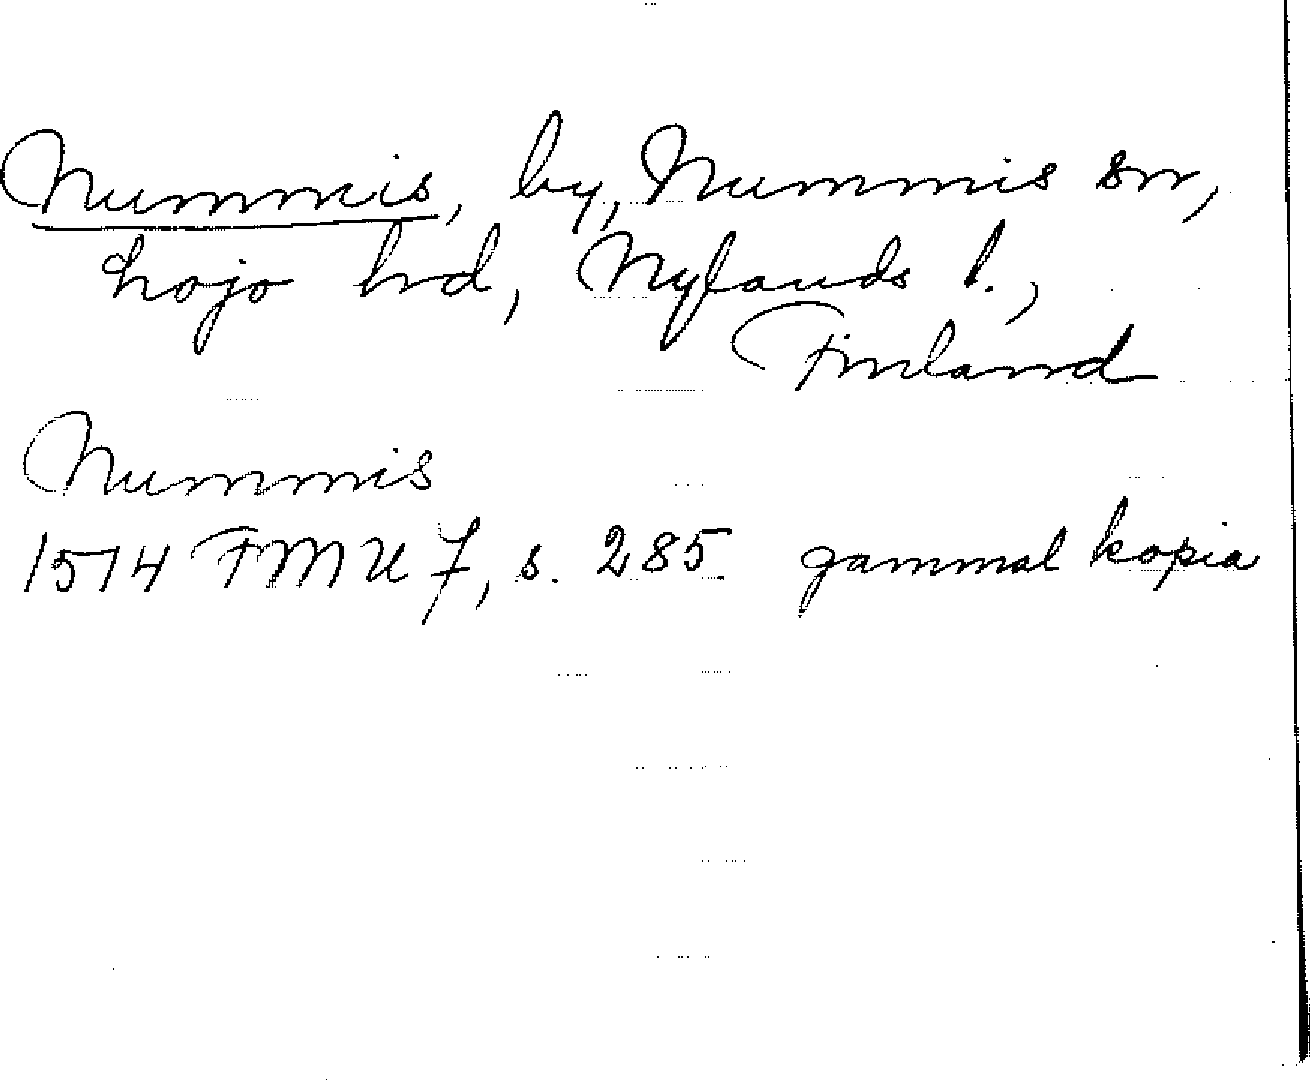 Nummis, by, Nummis sn,
Lojo hd, Nylands l.,
Finland
Nummis
1514 FMU 7, s. 285 gammal kopia